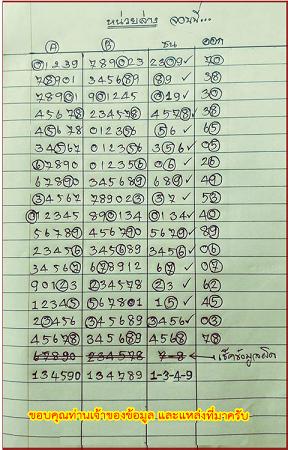 หน่วยล่าง งวดที่...
A B ชน ออก
01239 789023 2309✓ 70
78901 345689 89✓ 38
78901 901245 019✓ 30
45678 234578 4578✓ 38
45678 012356 56✓ 65
34567 012356 356✓ 05
67890 012356 06✓ 26
67890 345689 689✓ 49
34567 789023 37✓ 53
012345 890134 0134✓ 40
56789 456790 5679✓ 89
23456 345689 3456✓ 06
34567 678912 67✓ 07
90123 234578 23✓ 62
12345 567801 15✓ 45
23456 345689 3456✓ 03
45678 345689 4568✓ 78
67890 234578 7-8 ← เช็คข้อมูลผิด
134590 134789 1-3-4-9
ขอบคุณท่านเจ้าของข้อมูล และแหล่งที่มาครับ